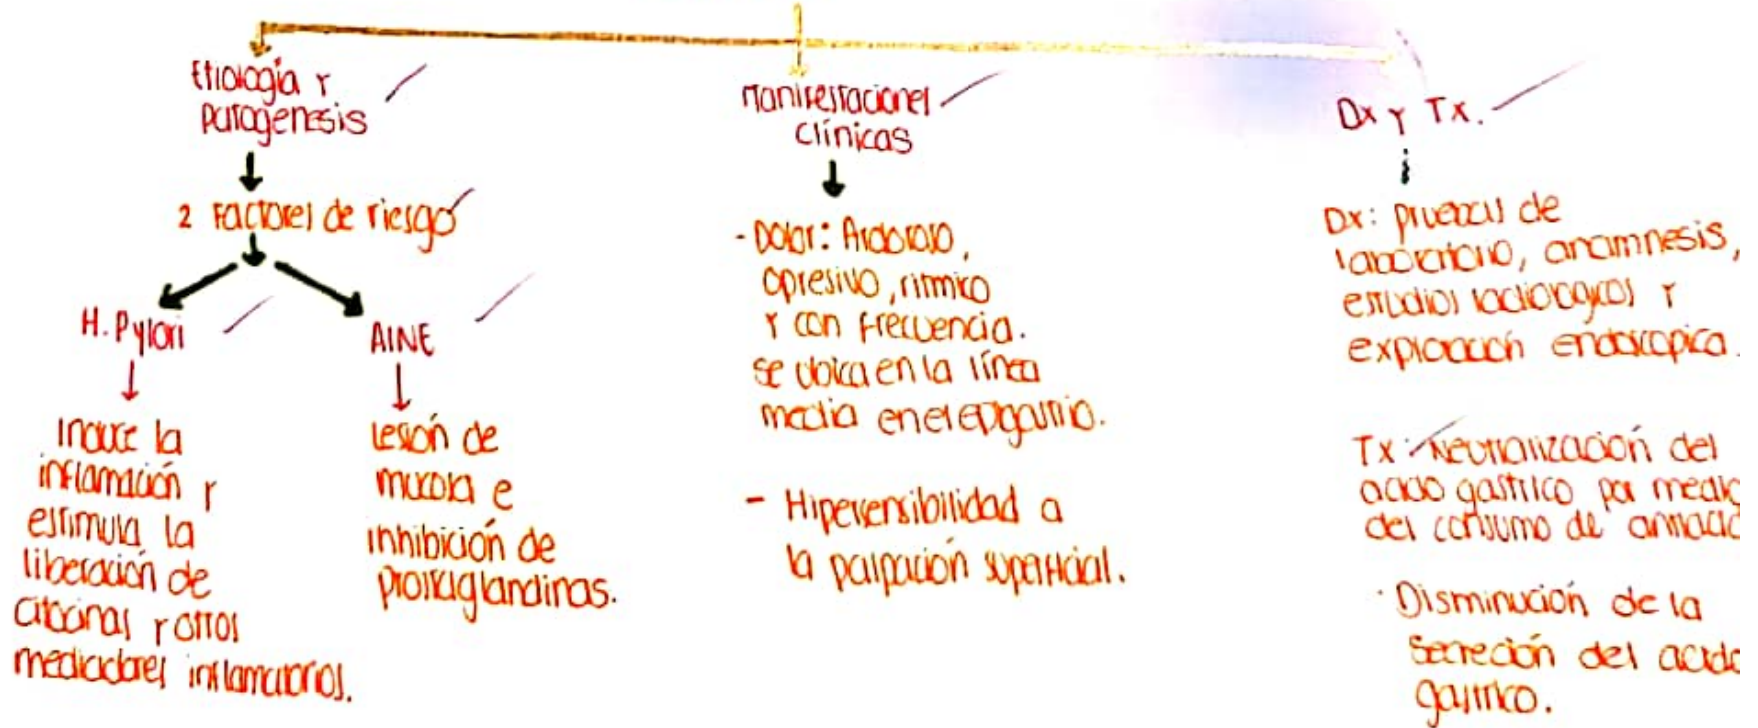 Etiología y
patogenesis
2 Factores de riesgo
H. Pylori
Induce la
inflamación y
estimula la
liberación de
citocinas y otros
mediadores inflamatorios.
AINE
Lesión de
mucosa e
inhibición de
prostaglandinas.
Manifestaciones
clínicas
- Dolor: Ardoroso,
opresivo, rítmico
y con frecuencia.
se ubica en la línea
media en el epigastrio.
- Hipersensibilidad a
la palpación superficial.
Dx y Tx.
Dx: pruebas de
laboratorio, anamnesis,
estudios radiologicos y
exploración endoscopica.
Tx: Neutralización del
acido gastrico por medio
del consumo de antiacido
· Disminución de la
secreción del acido
gastrico.